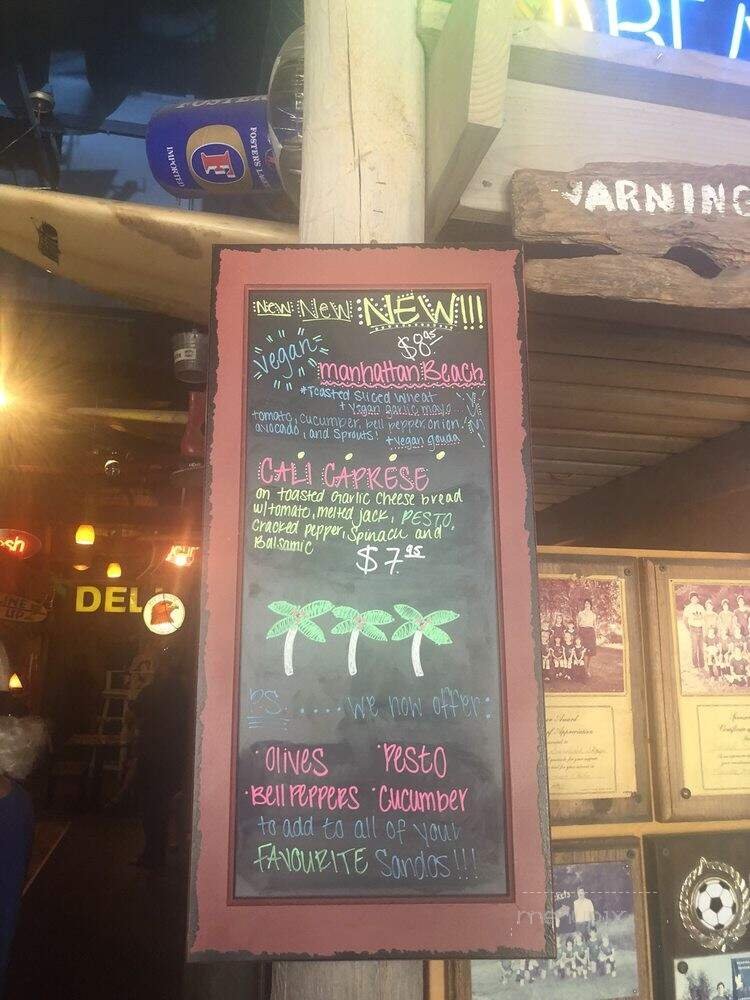 FOSTER'S
IMPORTED
FOSTER'S LAGER
WARNING
New New NEW!!!
Vegan
$8.95
Manhattan Beach
*Toasted Sliced Wheat
+ Vegan garlic mayo
tomato, cucumber, bell pepper, onion,
avocado, and Sprouts! + vegan gouda
CALI CAPRESE
on toasted Garlic Cheese bread
w/ tomato, melted jack, PESTO,
Cracked pepper, Spinach and
Balsamic
$7.95
P.S. .... we now offer:
• Olives • Pesto
• Bell Peppers • Cucumber
to add to all of your
FAVOURITE Sandos!!!
DEL
menupix